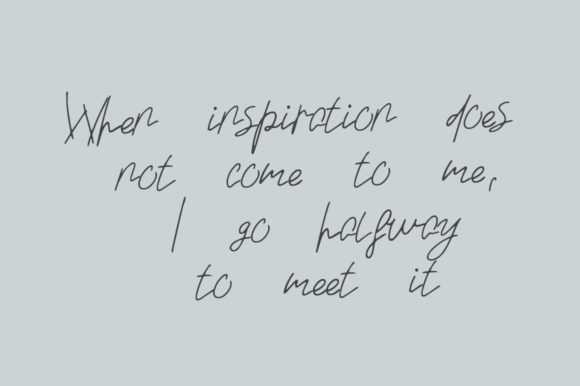 When inspiration does
not come to me,
I go halfway
to meet it